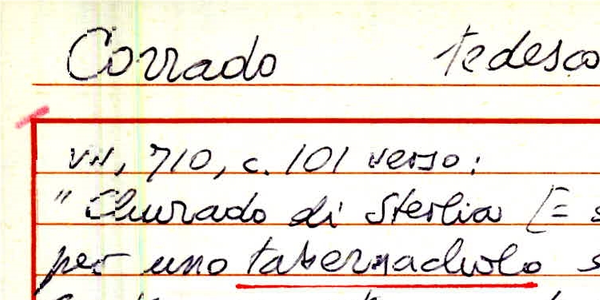 Corrado tedesco
VII, 710, c. 101 verso:
"Churado di Sterlia [= s
per uno tabernacholo s